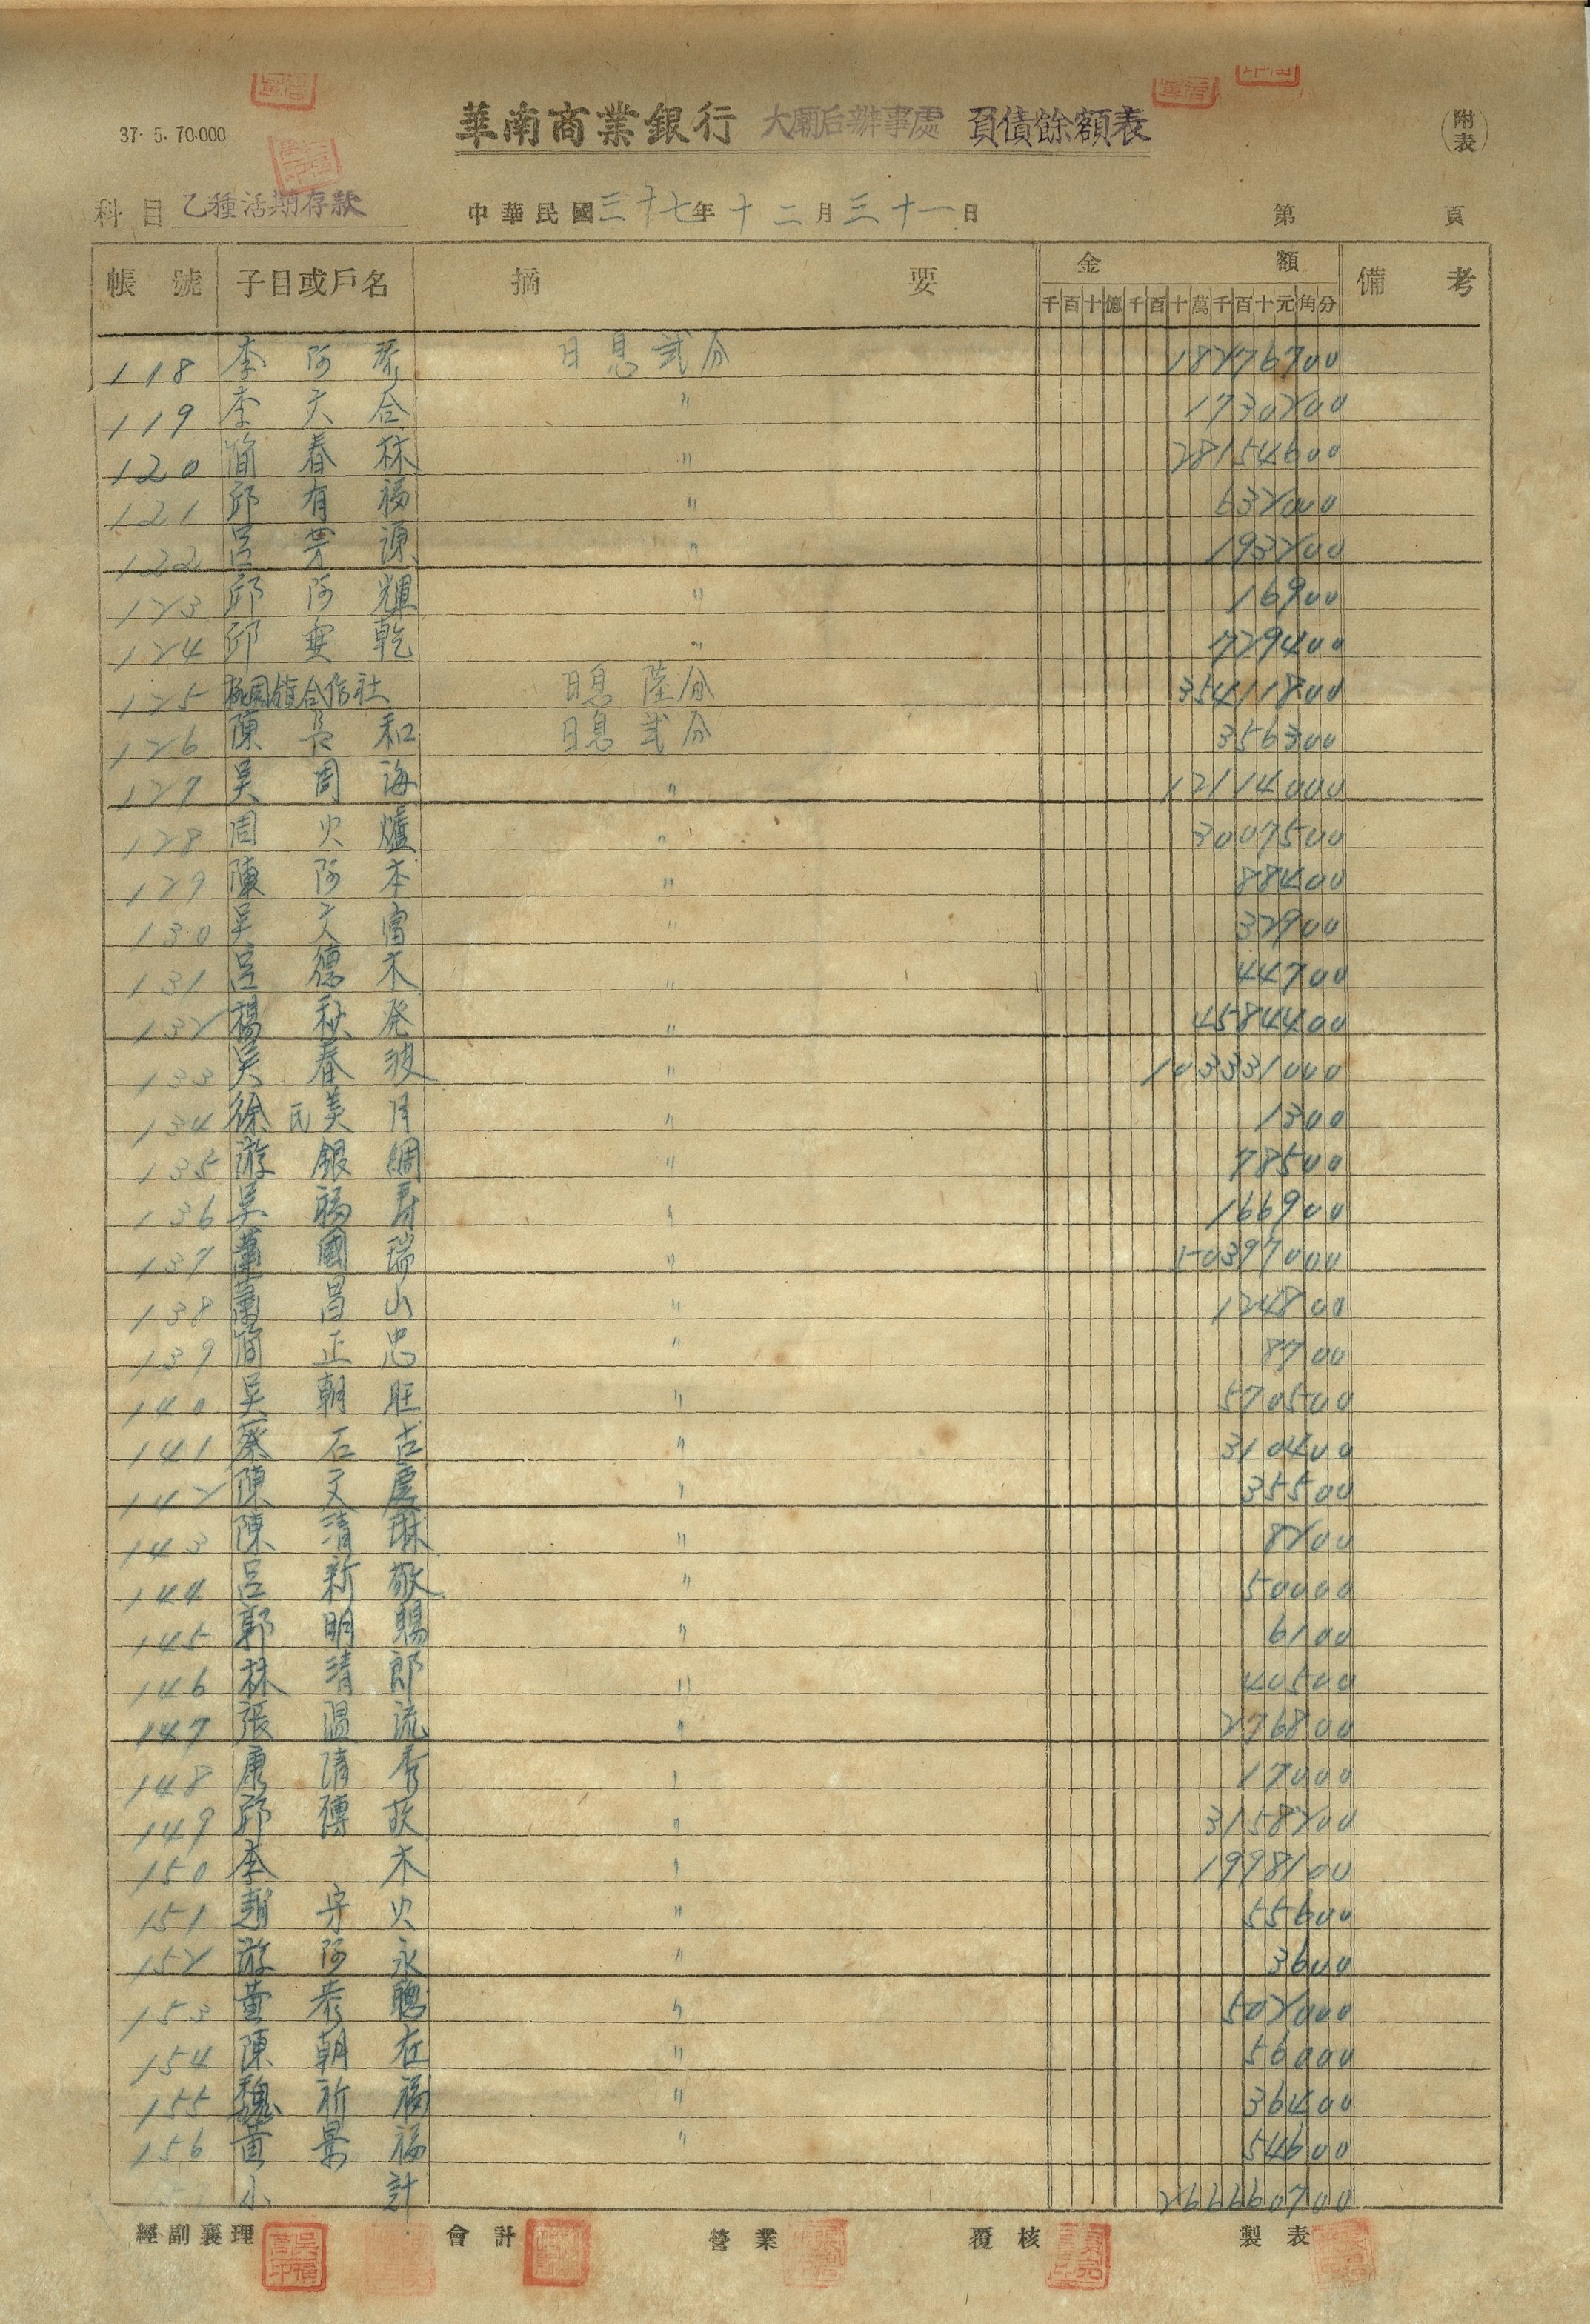 37. 5. 70.000
華南商業銀行 大廟后辦事處 負債餘額表
(附表)
科目 乙種活期存款 中華民國三十七年十二月三十一日 第 頁
帳號 子目或戶名 摘要 金額 備考
千百十億千百十萬千百十元角分
118 李阿 日息貳分 18276700
119 李天合 〃 1730200
120 簡春林 〃 28154600
121 邱有福 〃 632000
122 呂芳源 〃 193200
123 邱阿輝 〃 16900
124 邱乾 〃 729400
125 桃園鎮合作社 日息陸分 35411800
126 陳長和 日息貳分 356300
127 吳周海 〃 12114000
128 周火爐 〃 3007500
129 陳阿本 〃 88400
130 吳文富 〃 32900
131 呂德木 〃 44700
132 楊秋発 〃 4584400
133 吳春波 〃 103331000
134 徐氏美月 〃 1300
135 游銀綢 〃 78500
136 吳福寿 〃 166900
137 國瑞 〃 10397000
138 昌山 〃 124800
139 簡正忠 〃 8700
140 吳朝旺 〃 570500
141 蔡石古 〃 310400
142 陳文慶 〃 35500
143 陳清琳 〃 8200
144 呂新敬 〃 50000
145 郭明賜 〃 6100
146 林清郎 〃 40500
147 張温流 〃 276800
148 康清秀 〃 17000
149 邱傳 〃 3158200
150 李木 〃 1998100
151 趙守火 〃 55600
152 游阿永 〃 3600
153 黃聰 〃 502000
154 陳朝在 〃 56000
155 魏新福 〃 36400
156 黃景福 〃 54600
小計 266660700
經副襄理 會計 營業 覆核 製表